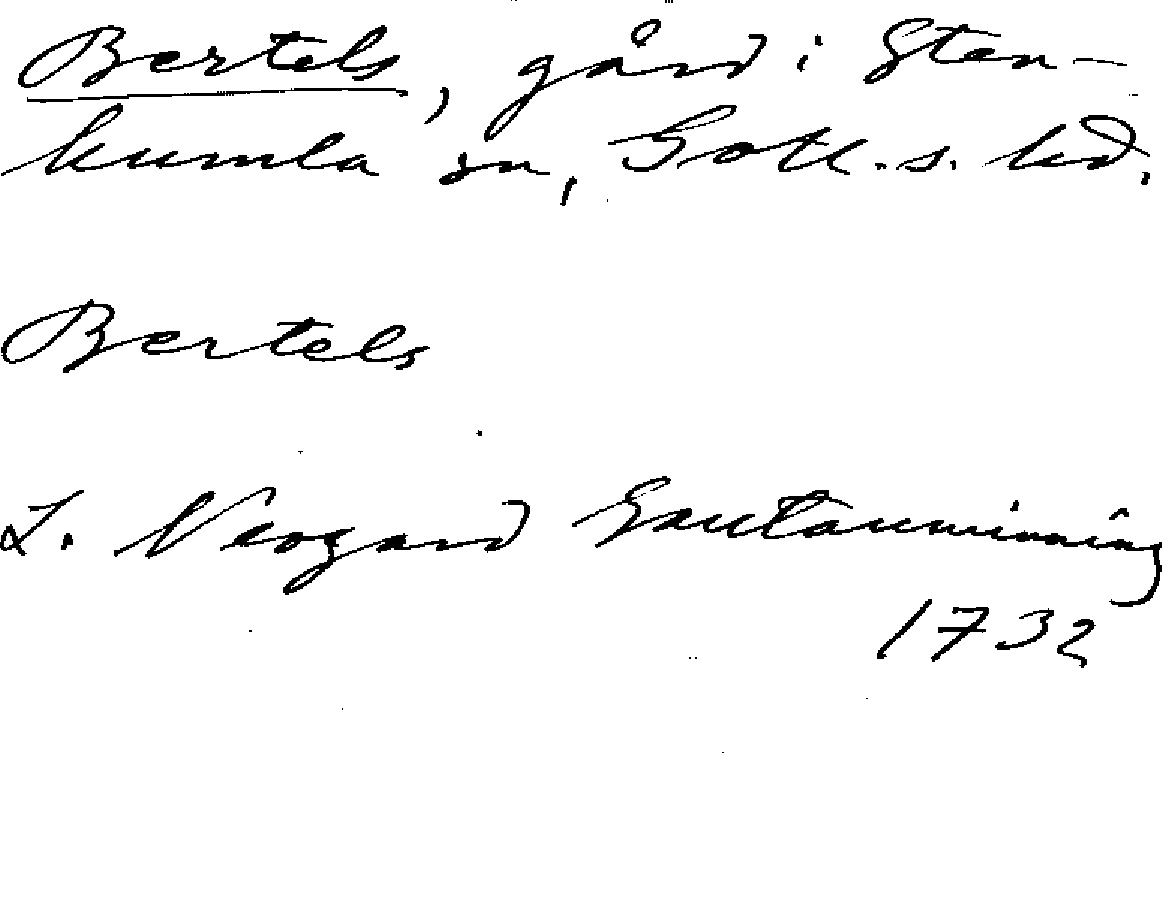 Bertels, gård i Sten-
kumla sn, Gotl. s. hd.
Bertels
L. Neogard Gautauminning
1732